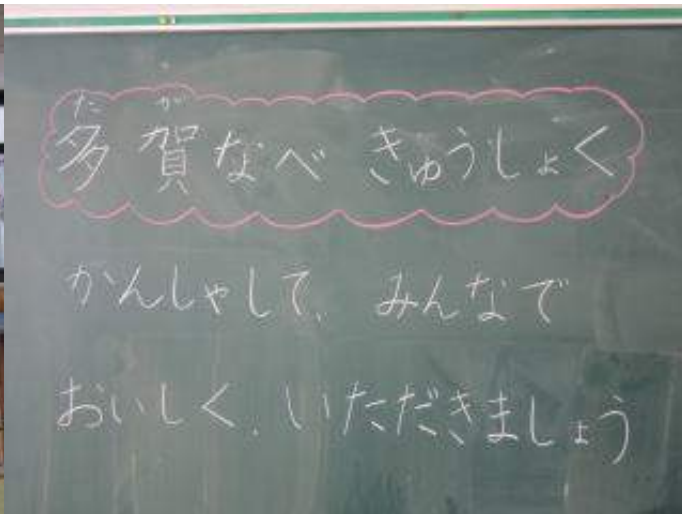 たが
多賀なべ きゅうしょく
かんしゃして、みんなで
おいしく、いただきましょう